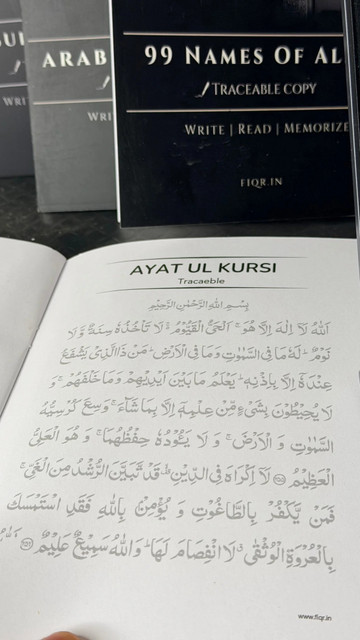 ARAB
WRI
99 NAMES OF AL
TRACEABLE COPY
WRITE | READ | MEMORIZE
FIQR.IN
AYAT UL KURSI
Tracaeble
بِسْمِ اللهِ الرَّحْمٰنِ الرَّحِيْمِ
اَللهُ لَآ اِلٰهَ اِلَّا هُوَ ۚ اَلْحَيُّ الْقَيُّوْمُ ۚ لَا تَاْخُذُهٗ سِنَةٌ وَّ لَا
نَوْمٌ ؕ لَهٗ مَا فِی السَّمٰوٰتِ وَ مَا فِی الْاَرْضِ ؕ مَنْ ذَا الَّذِیْ یَشْفَعُ
عِنْدَهٗۤ اِلَّا بِاِذْنِهٖ ؕ یَعْلَمُ مَا بَیْنَ اَیْدِیْهِمْ وَ مَا خَلْفَهُمْ ۚ وَ
لَا یُحِیْطُوْنَ بِشَیْءٍ مِّنْ عِلْمِهٖۤ اِلَّا بِمَا شَآءَ ۚ وَسِعَ كُرْسِیُّهُ
السَّمٰوٰتِ وَ الْاَرْضَ ۚ وَ لَا یَـُٔوْدُهٗ حِفْظُهُمَا ۚ وَ هُوَ الْعَلِیُّ
الْعَظِیْمُ ۝ لَاۤ اِكْرَاهَ فِی الدِّیْنِ ۙ قَدْ تَّبَیَّنَ الرُّشْدُ مِنَ الْغَیِّ ۚ
فَمَنْ یَّكْفُرْ بِالطَّاغُوْتِ وَ یُؤْمِنْۢ بِاللهِ فَقَدِ اسْتَمْسَكَ
بِالْعُرْوَةِ الْوُثْقٰی ۗ لَا انْفِصَامَ لَهَا ؕ وَ اللهُ سَمِیْعٌ عَلِیْمٌ ۝
www.fiqr.in